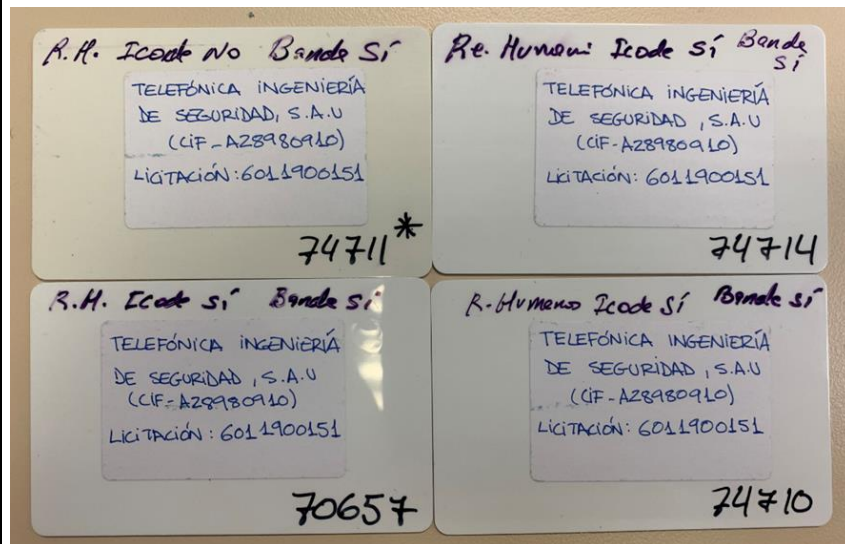 R.H. Icode No Banda Sí
TELEFÓNICA INGENIERÍA
DE SEGURIDAD, S.A.U
(CIF-A28980910)
LICITACIÓN: 6011900151
74711*
Re. Humani Icode Sí Banda
Sí
TELEFÓNICA INGENIERÍA
DE SEGURIDAD, S.A.U
(CIF-A28980910)
LICITACIÓN: 6011900151
74714
R.H. Icode Sí Banda Sí
TELEFÓNICA INGENIERÍA
DE SEGURIDAD, S.A.U
(CIF-A28980910)
LICITACIÓN: 6011900151
70657
R. Humanos Icode Sí Banda Sí
TELEFÓNICA INGENIERÍA
DE SEGURIDAD, S.A.U
(CIF-A28980910)
LICITACIÓN: 6011900151
74710